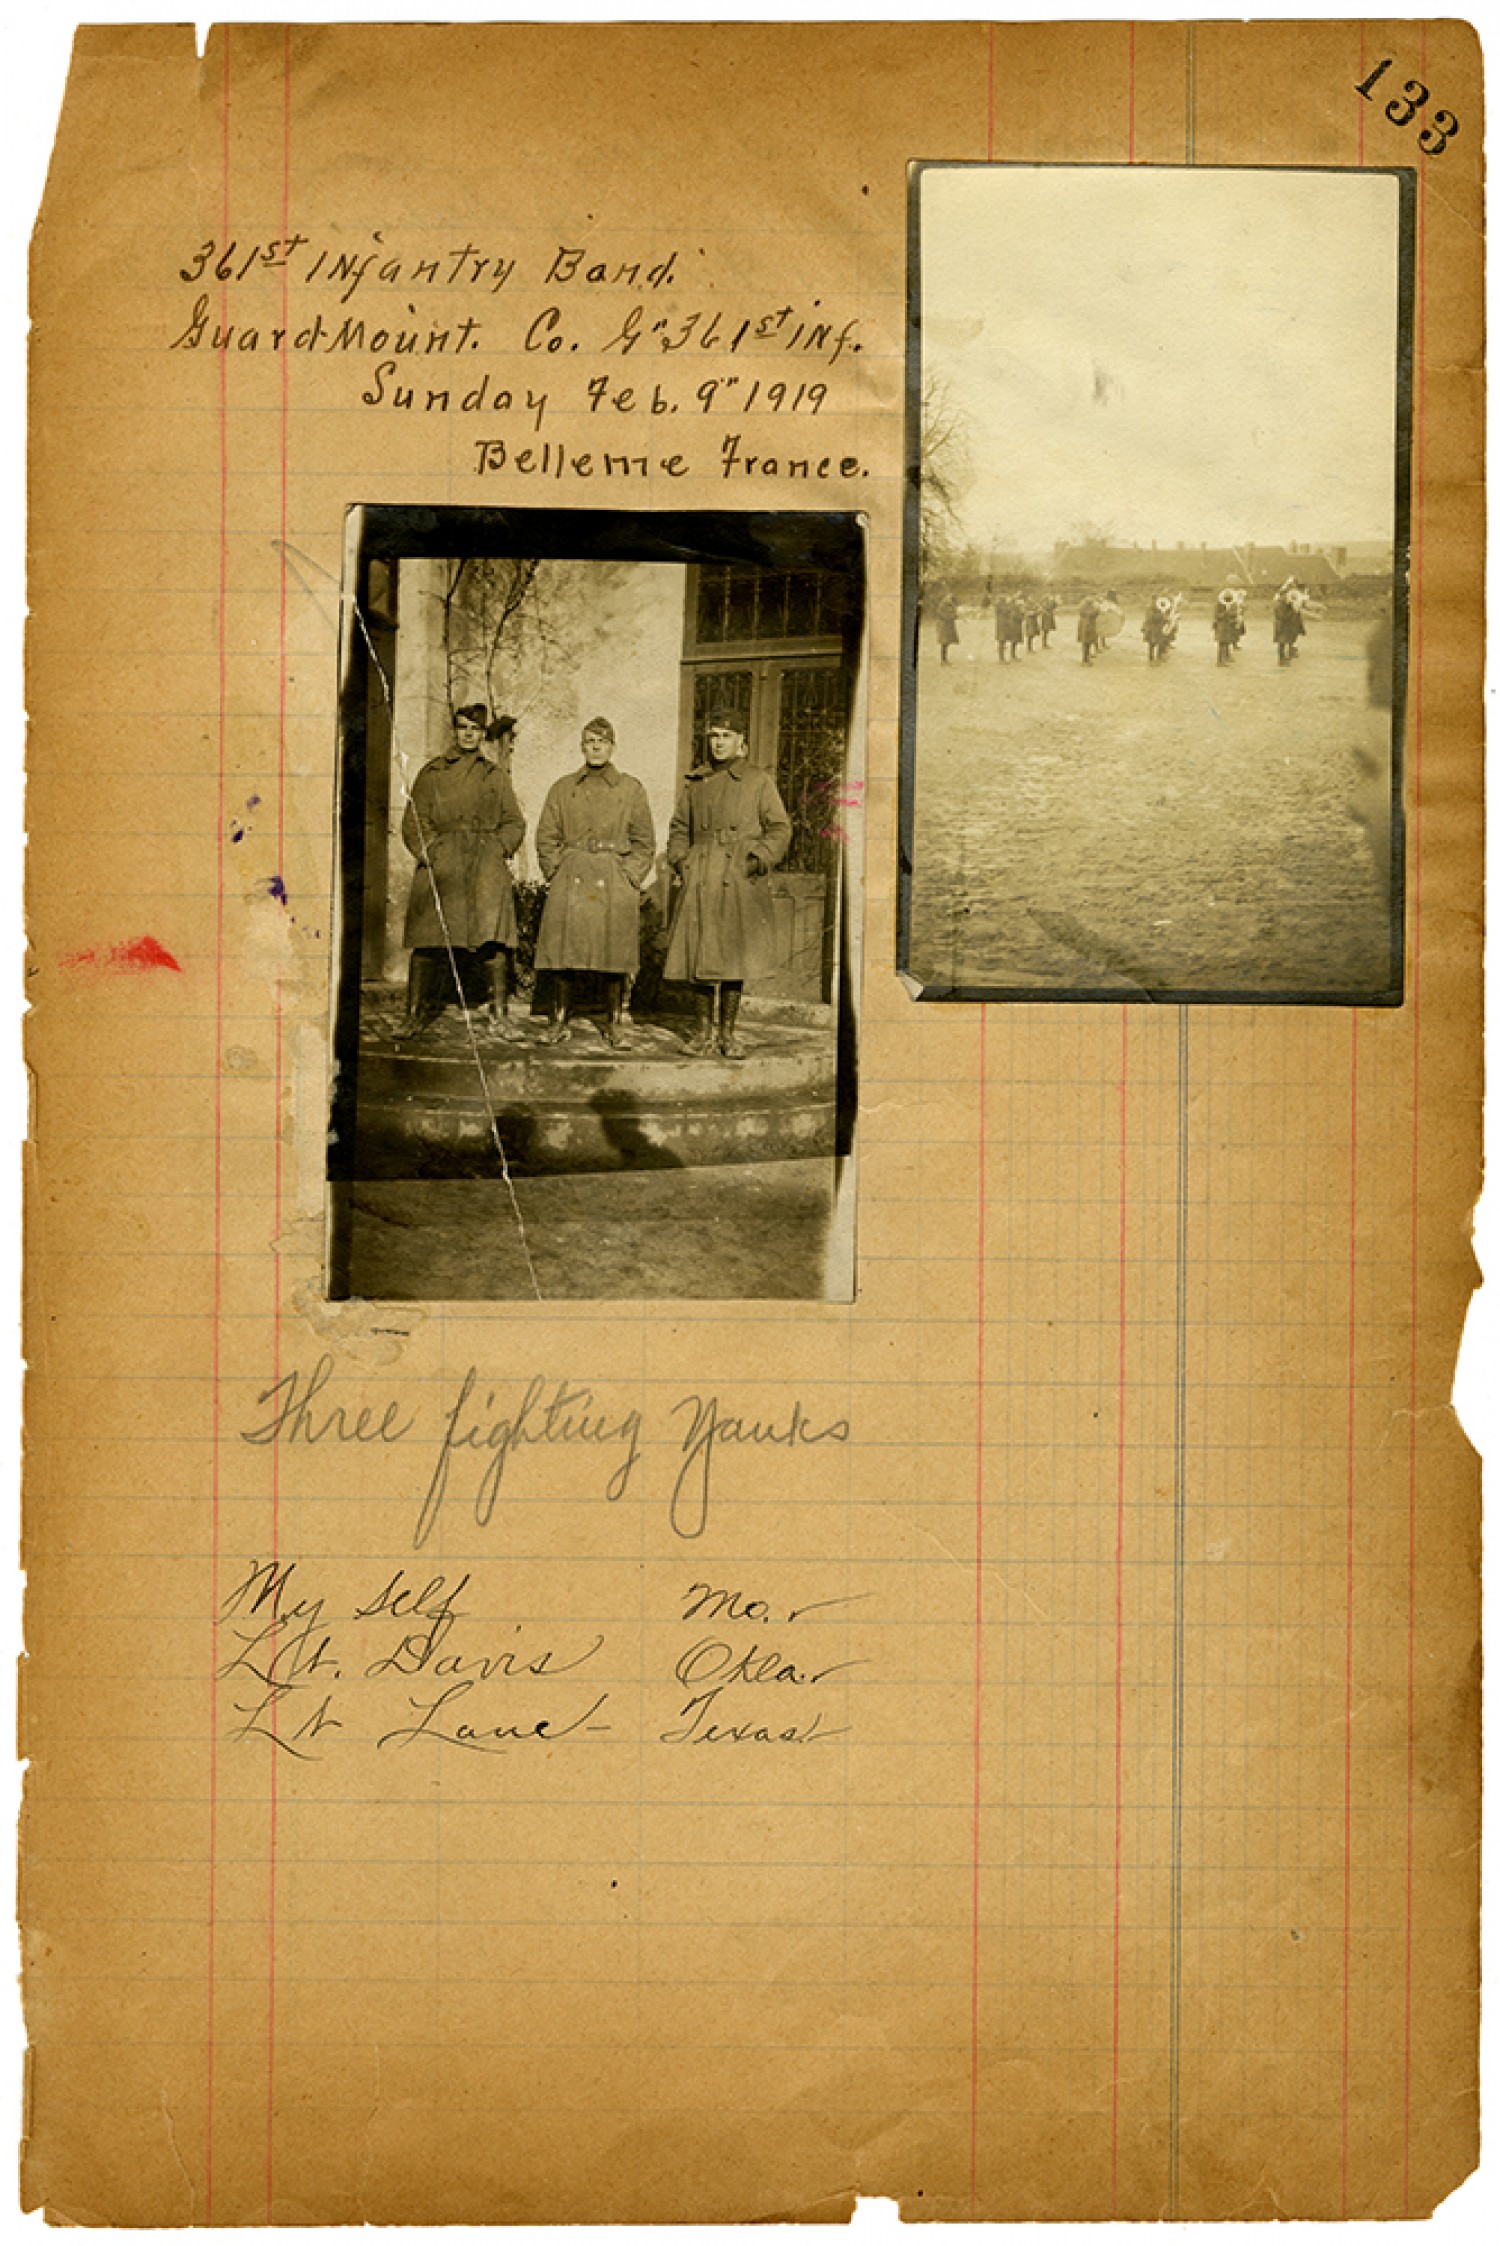 133
361st Infantry Band.
Guard Mount. Co. G" 361st inf.
Sunday Feb. 9" 1919
Belleme France.
Three fighting Yanks
My self Mo.
Lt. Davis Okla.
Lt Lane - Texas